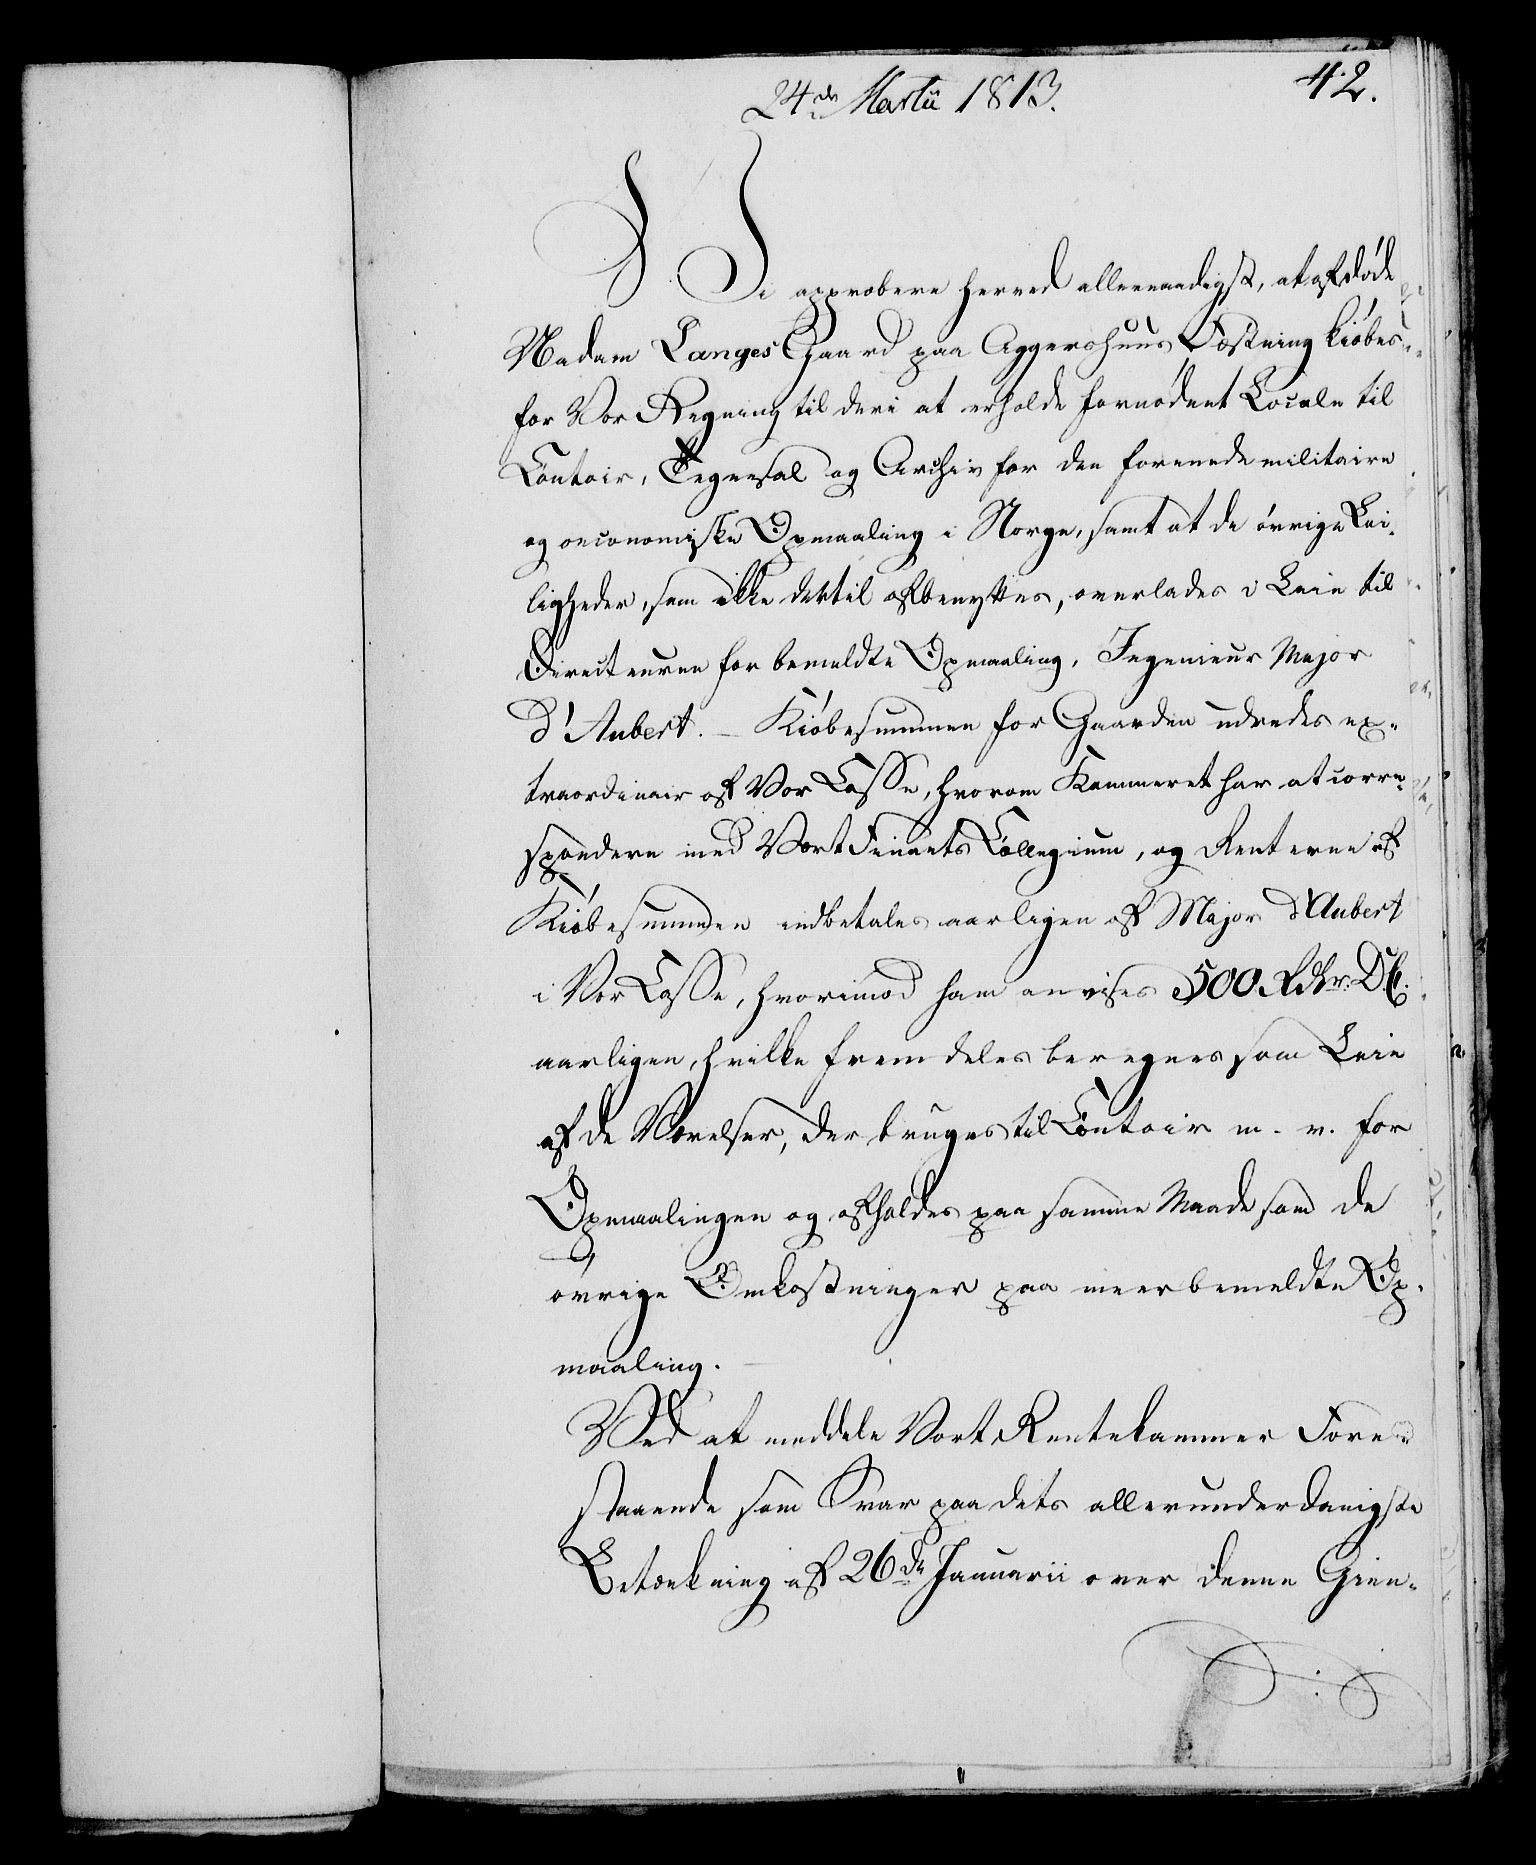 24de Martii 1813.
42.
Vi approbere herved allernaadigst, at afdøde
Madam Langes Gaard paa Aggershuus Fæstning kiøbes
for Vor Regning til deri at erholde fornødent Locale til
Contoir, Tegnesal og Archiv for den forenede militaire
og oeconomiske Opmaaling i Norge, samt at de øvrige Lei-
ligheder, som ikke dertil afbenyttes, overlades i Leie til
Directeuren for bemeldte Opmaaling, Ingenieur Major
d'Aubert. – Kiøbesummen for Gaarden udredes ex-
traordinair af Vor Casse, hvorom Kammeret har at corre-
spondere med Vort Finants Collegium, og Renterne af
Kiøbesummen indbetales aarligen af Major d'Aubert
i Vor Casse, hvorimod ham anvises 500 Rdlr. D.C.
aarligen, hvilke fremdeles beregnes som Leie
af de Værelser, der bruges til Contoir m. v. for
Opmaalingen og afholdes paa samme Maade som de
øvrige Omkostninger paa meerbemeldte Op-
maaling.
Ved at meddele Vort Rentekammer Fore-
staaende som Svar paa dets allerunderdanigste
Betænkning af 26de Januarii over denne Gien-